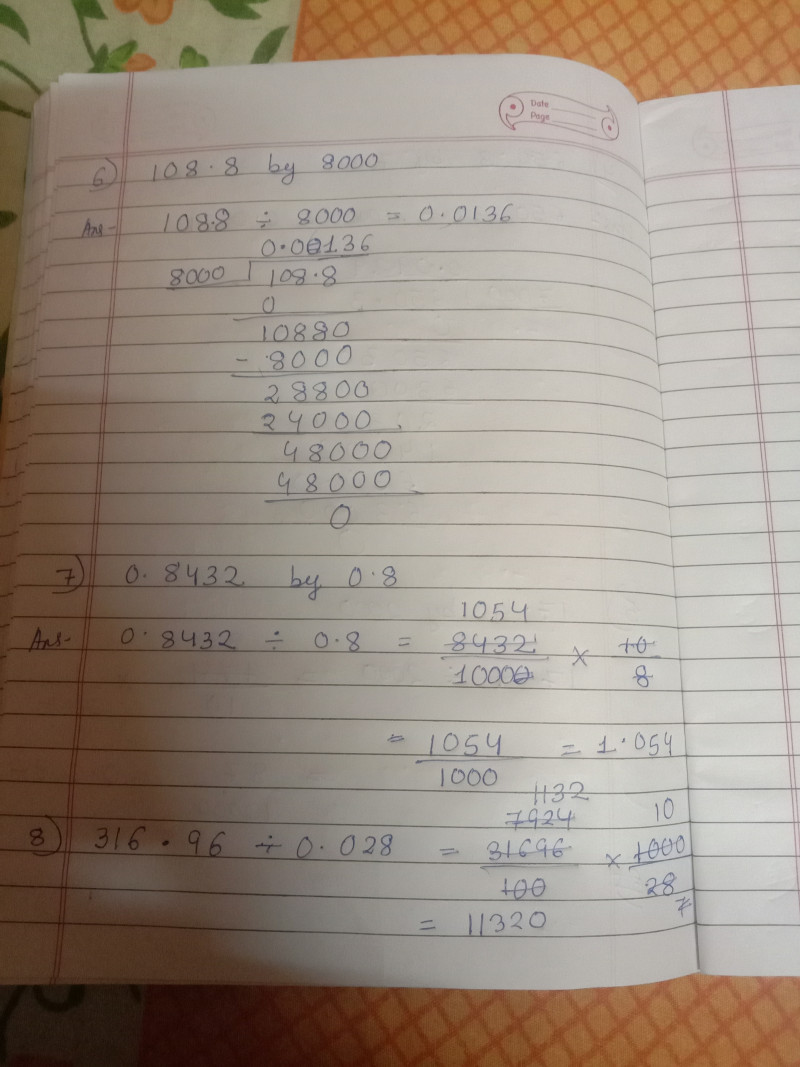 Date
Page
6) 108.8 by 8000
Ans- 108.8 ÷ 8000 = 0.0136
0.00136
8000 108.8
0
10880
- 8000
28800
24000
48000
48000
0
7) 0.8432 by 0.8
1054
Ans- 0.8432 ÷ 0.8 = 8432/10000 × 10/8
= 1054/1000 = 1.054
1132
7924 10
8) 316.96 ÷ 0.028 = 31696/100 × 1000/28
7
= 11320